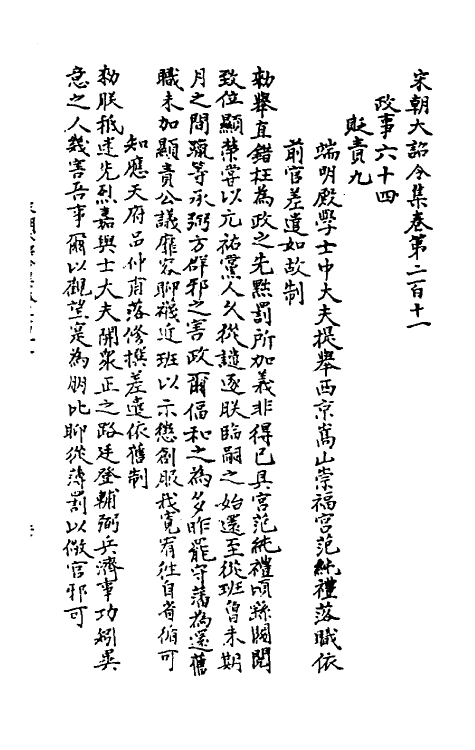 宋朝大詔令集卷第二百十一
政事六十四
貶責九
端明殿學士中大夫提舉西京嵩山崇福宮范純禮落職依
前官差遣如故制
勑舉直錯枉為政之先黜罰所加義非得已具宮范純禮頃繇閥閱
致位顯榮嘗以元祐黨人久從譴逐朕臨嗣之始還至從班曾未期
月之間躐等承弼方群邪之害政爾倡和之為多昨罷守藩為還舊
職未加顯責公議靡容聊褫近班以示懲創服我寬宥往自省循可
知應天府呂仲甫落修撰差遣依舊制
勑朕祗述先烈嘉與士大夫開衆正之路廷登輔弼兵濟事功姦吳
怠之人幾害吾事爾以觀望寔為朋比聊從薄罰以儆官邪可